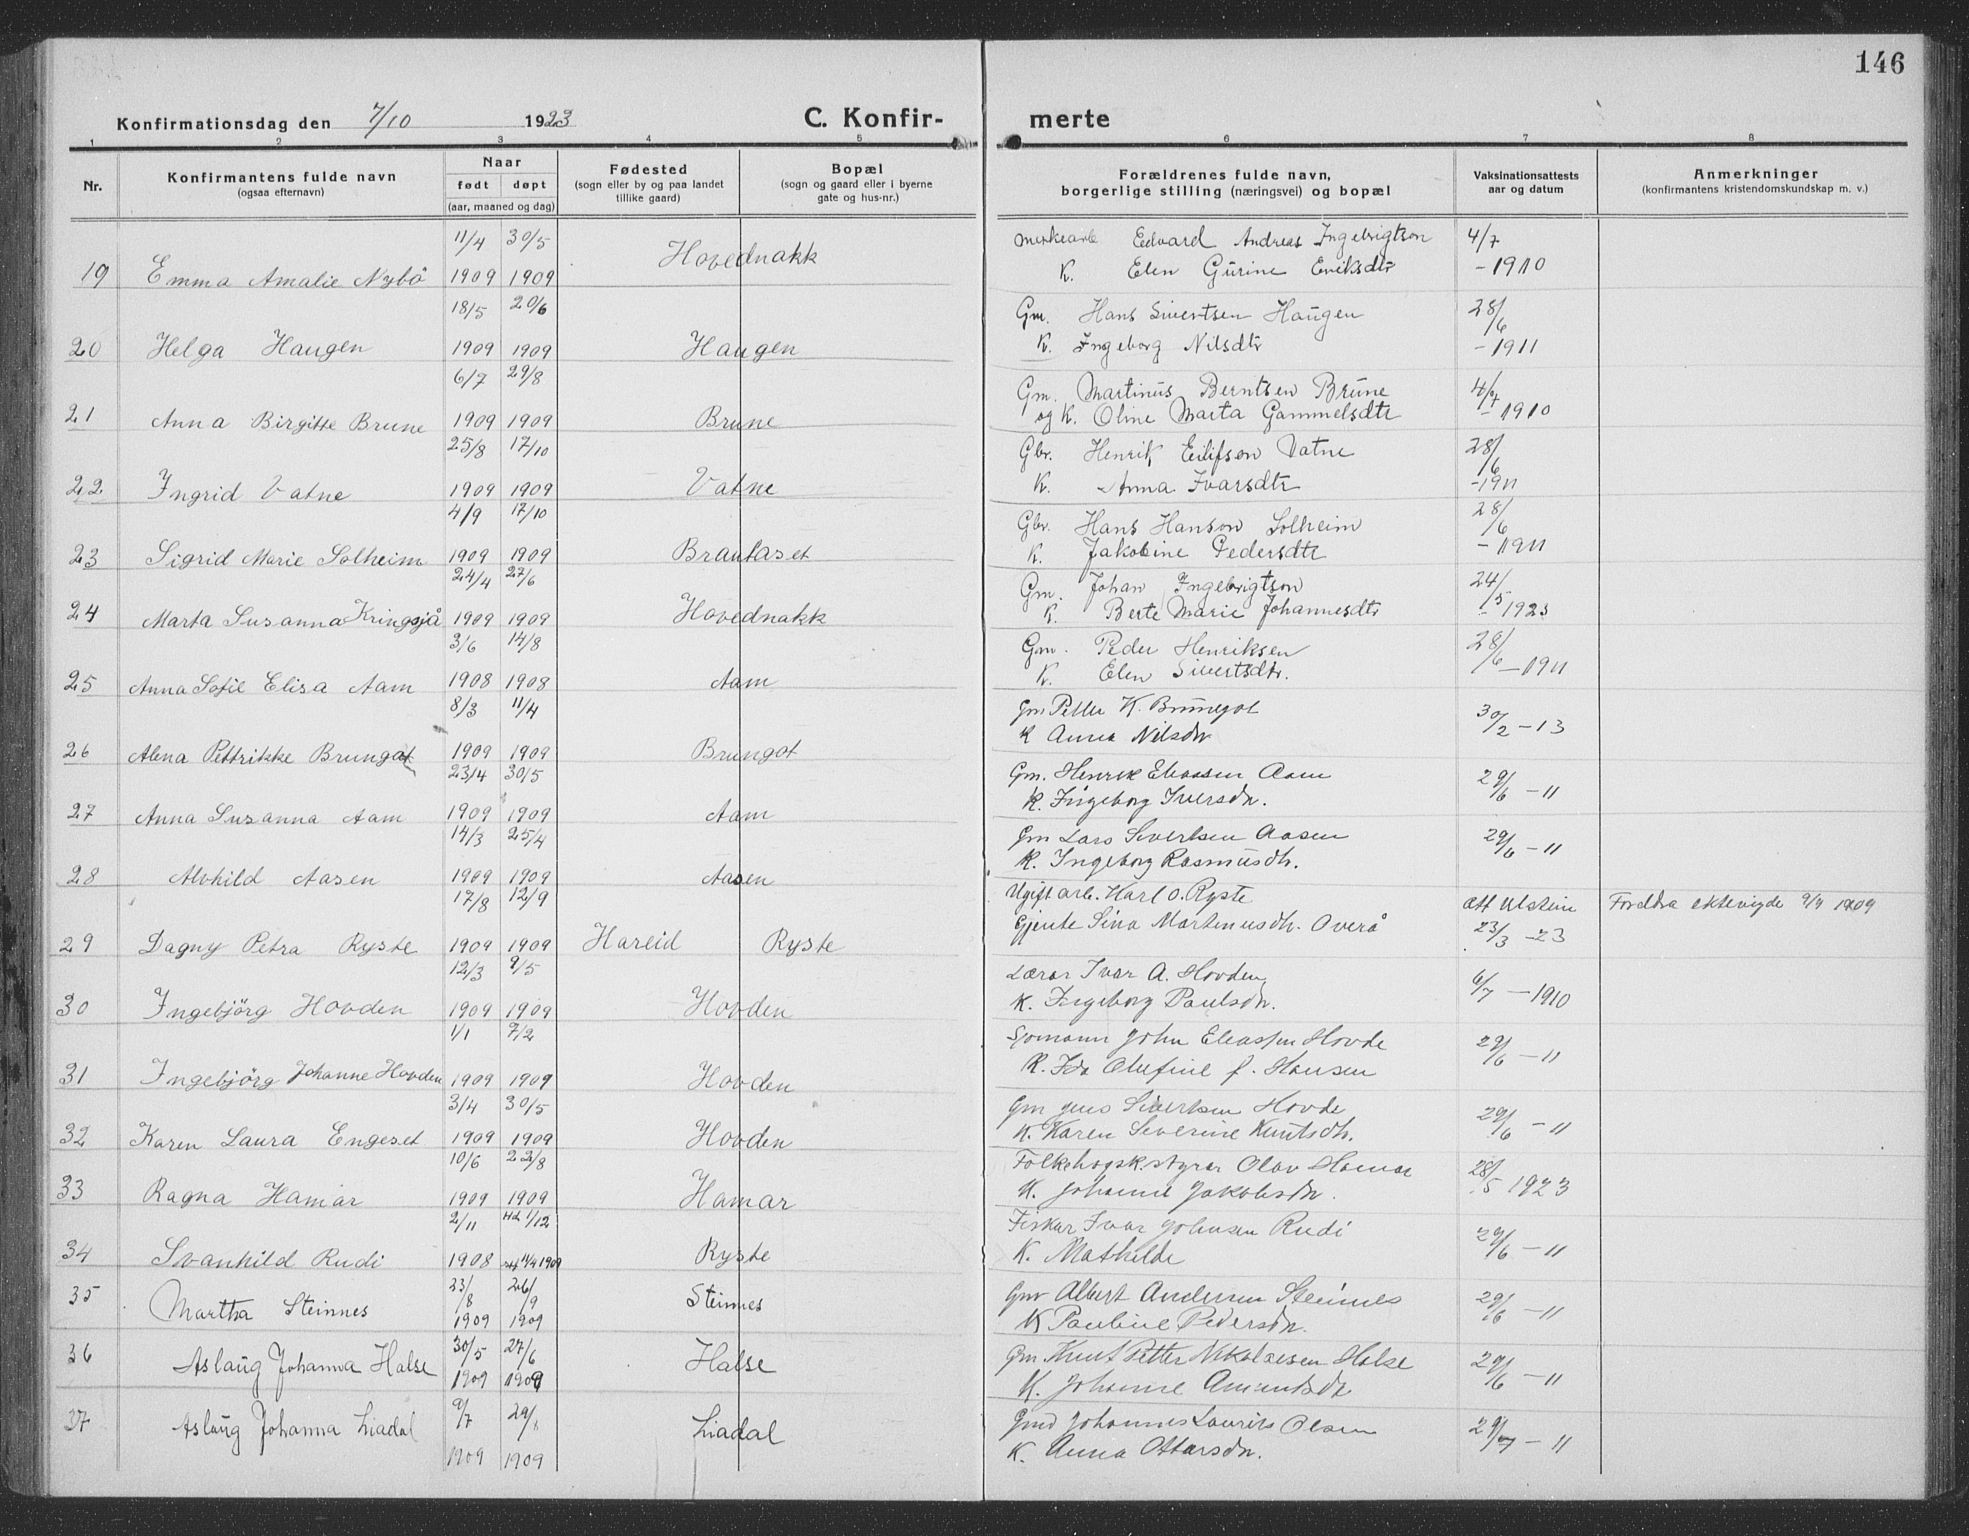 146
Konfirmationsdag den 7/10 1923 C. Konfir- merte
1 2 3 4 5 6 7 8
Nr. Konfirmantens fulde navn (ogsaa efternavn) Naar født døpt (aar, maaned og dag) Fødested (sogn eller by og paa landet tillike gaard) Bopæl (sogn og gaard eller i byerne gate og hus-nr.) Forældrenes fulde navn, borgerlige stilling (næringsvei) og bopæl Vaksinationsattests aar og datum Anmerkninger (konfirmantens kristendomskundskap m. v.)
11/4 30/5 Edvard Andreas Ingebrigtson 4/7
19 Emma Amalie Nybö 1909 1909 Hovednakk K. Elen Gurine Eriksdtr - 1910
18/5 20/6 Gm. Hans Sivertsen Haugen 28/6
20 Helga Haugen 1909 1909 Haugen K. Ingeborg Nilsdtr - 1911
6/7 29/8 Gm. Martinus Berntsen Brune 4/7
21 Anna Birgitte Brune 1909 1909 Brune og K. Oline Marta Gammelsdtr - 1910
25/8 17/10 Gbr. Henrik Eilifson Vatne 28/6
22 Ingrid Vatne 1909 1909 Vatne K. Anna Ivarsdtr - 1911
4/9 17/10 Gbr. Hans Hanson Solheim 28/6
23 Sigrid Marie Solheim 1909 1909 Brautaset K. Jakobine Pedersdtr - 1911
24/4 27/6 Gm. Johan Ingebrigtson 24/5
24 Marta Susanna Kringsjå 1909 1909 Hovednakk K. Berte Marie Johannesdtr - 1923
3/6 14/8 Gm. Peder Henriksen 28/6
25 Anna Sofie Elisa Aam 1908 1908 Aam K. Elen Sivertsdtr. - 1911
8/3 11/4 Gm Petter K. Brungot 30/2 - 13
26 Alena Pettrikke Brungot 1909 1909 Brungot K Anna Nilsdtr
23/4 30/5 Gm. Henrik Eliassen Aam 29/6 - 11
27 Anna Susanna Aam 1909 1909 Aam K. Ingeborg Iversdtr.
14/3 25/4 Gm Lars Sivertsen Aasen 29/6 - 11
28 Alvhild Aasen 1909 1909 Aasen K. Ingeborg Rasmusdtr.
17/8 12/9 Ugift arb. Karl O. Ryste att Ulstein Fordtra ektevigde 9/4 1909
29 Dagny Petra Ryste 1909 1909 Hareid Ryste Gjente Sina Martinusdtr. Overå 23/3 - 23
12/3 9/5 Lærar Ivar A. Hovden 6/7 - 1910
30 Ingebjörg Hovden 1909 1909 Hovden K. Ingeborg Paulsdtr.
1/1 7/2 Sjomann John Eliassen Hovde 29/6 - 11
31 Ingebjörg Johanne Hovden 1909 1909 Hovden K. Ida Olufine f. Hansen
3/4 30/5 Gm Jens Sivertsen Hovde 29/6 - 11
32 Karen Laura Engeset 1909 1909 Hovden K. Karen Severine Knutsdtr.
10/6 22/8 Folkehøgsk.styrar Olav Hamar 28/5 1923
33 Ragna Hamar 1909 1909 Hamar K. Johanne Jakobsdtr.
2/11 Hd. 1/12 Fiskar Ivar Johnsen Rudi 29/6 - 11
34 Svanhild Rudi 1908 1909 Ryste K. Mathilde
35 23/8 26/9 Gm Albert Andersen Steinnes 29/6 - 11
Martha Steinnes 1909 1909 Steinnes K Pauline Pedersdtr.
36 30/5 27/6 Gm Knut Petter Nikolaisen Halse 29/6 - 11
Aslaug Johanna Halse 1909 1909 Halse K. Johanne Amundsdtr
37 9/7 29/8 Gmd Johannes Laurits Olsen 29/7 - 11
Aslaug Johanna Liadal 1909 1909 Liadal K. Anna Ottarsdtr.